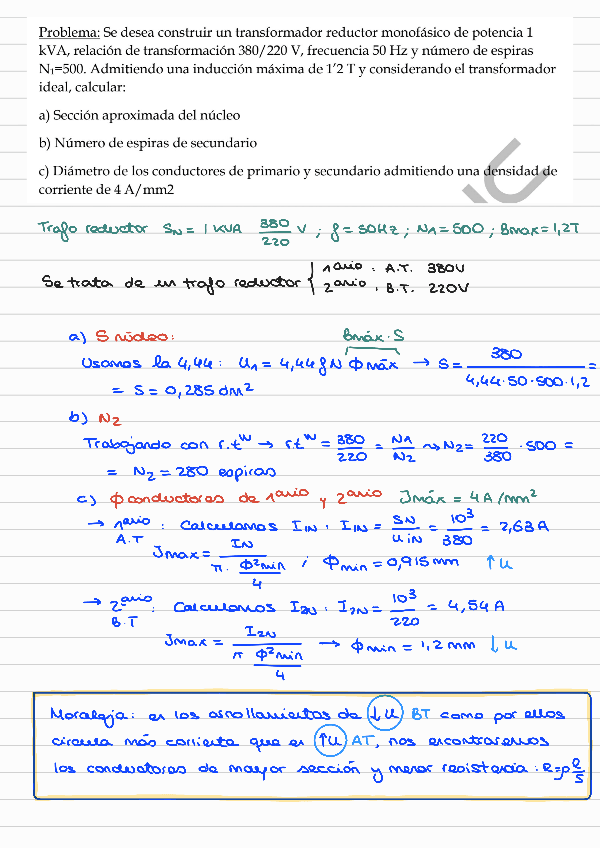 Problema: Se desea construir un transformador reductor monofásico de potencia 1
kVA, relación de transformación 380/220 V, frecuencia 50 Hz y número de espiras
N₁=500. Admitiendo una inducción máxima de 1'2 T y considerando el transformador
ideal, calcular:
a) Sección aproximada del núcleo
b) Número de espiras de secundario
c) Diámetro de los conductores de primario y secundario admitiendo una densidad de
corriente de 4 A/mm2
Trafo reductor SN = 1 KVA 380/220 V ; f = 50Hz ; N1 = 500 ; Bmax = 1,2T
Se trata de un trafo reductor { 1ario : A.T. 380V
2ario : B.T. 220V
a) S núcleo: Bmáx · S
Usamos la 4,44 : U1 = 4,44 f N Φmáx → S = 380/(4,44·50·500·1,2) =
= S = 0,285 dm²
b) N2
Trabajando con r.tᵂ → r.tᵂ = 380/220 = N1/N2 ⤳ N2 = 220/380 · 500 =
= N2 = 280 espiras
c) ϕ conductores de 1ario y 2ario Jmáx = 4 A/mm²
→ 1ario : Calculamos I1N : I1N = SN/U1N = 10³/380 = 2,63 A
A.T
Jmax = IN/(π · ϕ²min/4) ; ϕmin = 0,915 mm ↑u
→ 2ario : Calculamos I2N : I2N = 10³/220 = 4,54 A
B.T
Jmax = I2N/(π ϕ²min/4) → ϕmin = 1,2 mm ↓u
Moraleja: en los arrollamientos de ↓u BT como por ellos
circula más corriente que en ↑u AT, nos encontraremos
los conductores de mayor sección y menor resistencia : R=ρ ℓ/S